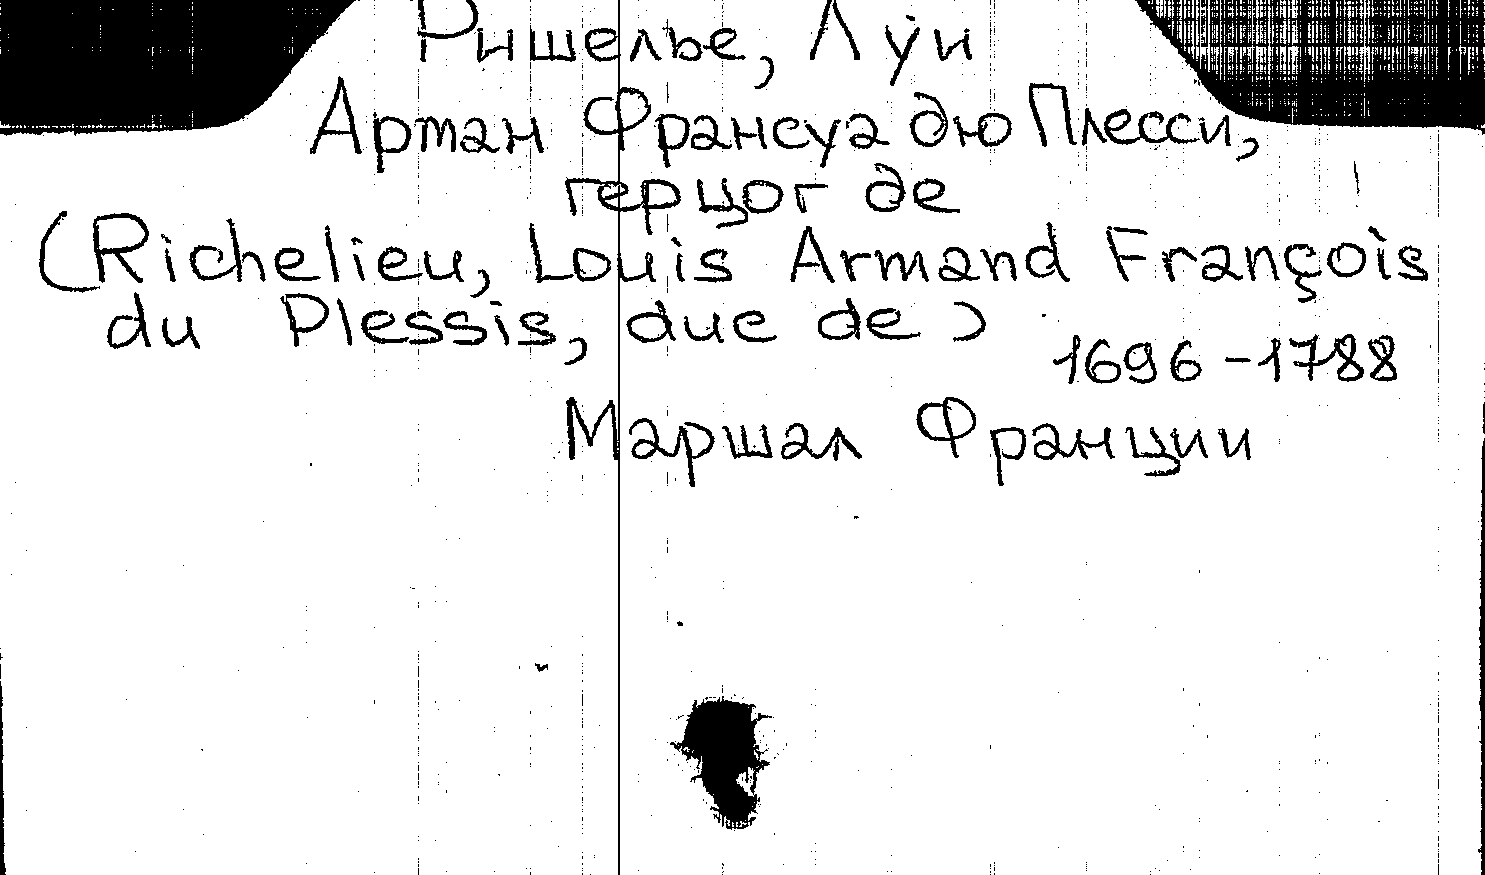 Ришелье, Луи
Арман Франсуа дю Плесси,
герцог де
(Richelieu, Louis Armand François
du Plessis, duc de)
1696-1788
Маршал Франции